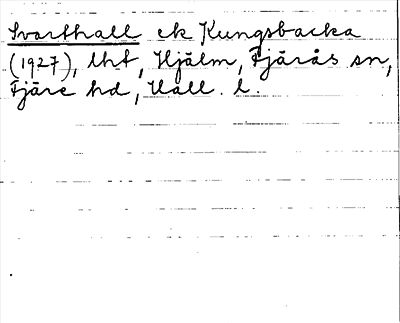 Svarthall ek Kungsbacka
(1927), lht, Hjälm, Fjärås sn,
Fjäre hd, Hall. l.